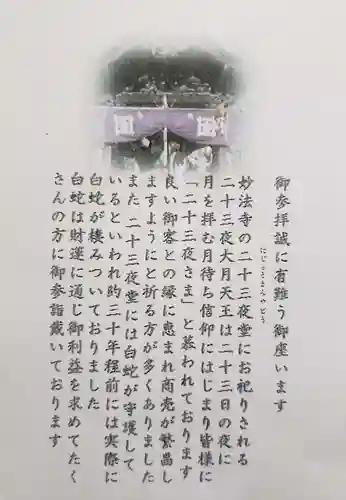 御参拝誠に有難う御座います
にじゅうさんやどう
妙法寺の二十三夜堂にお祀りされる
二十三夜大月天王は二十三日の夜に
月を拝む月待ち信仰にはじまり皆様に
「二十三夜さま」と慕われております
良い御客との縁に恵まれ商売が繁昌し
ますようにと祈る方が多くありました
また 二十三夜堂には白蛇が守護して
いるといわれ約三十年程前には実際に
白蛇が棲みついておりました
白蛇は財運に通じ御利益を求めてたく
さんの方に御参詣戴いております